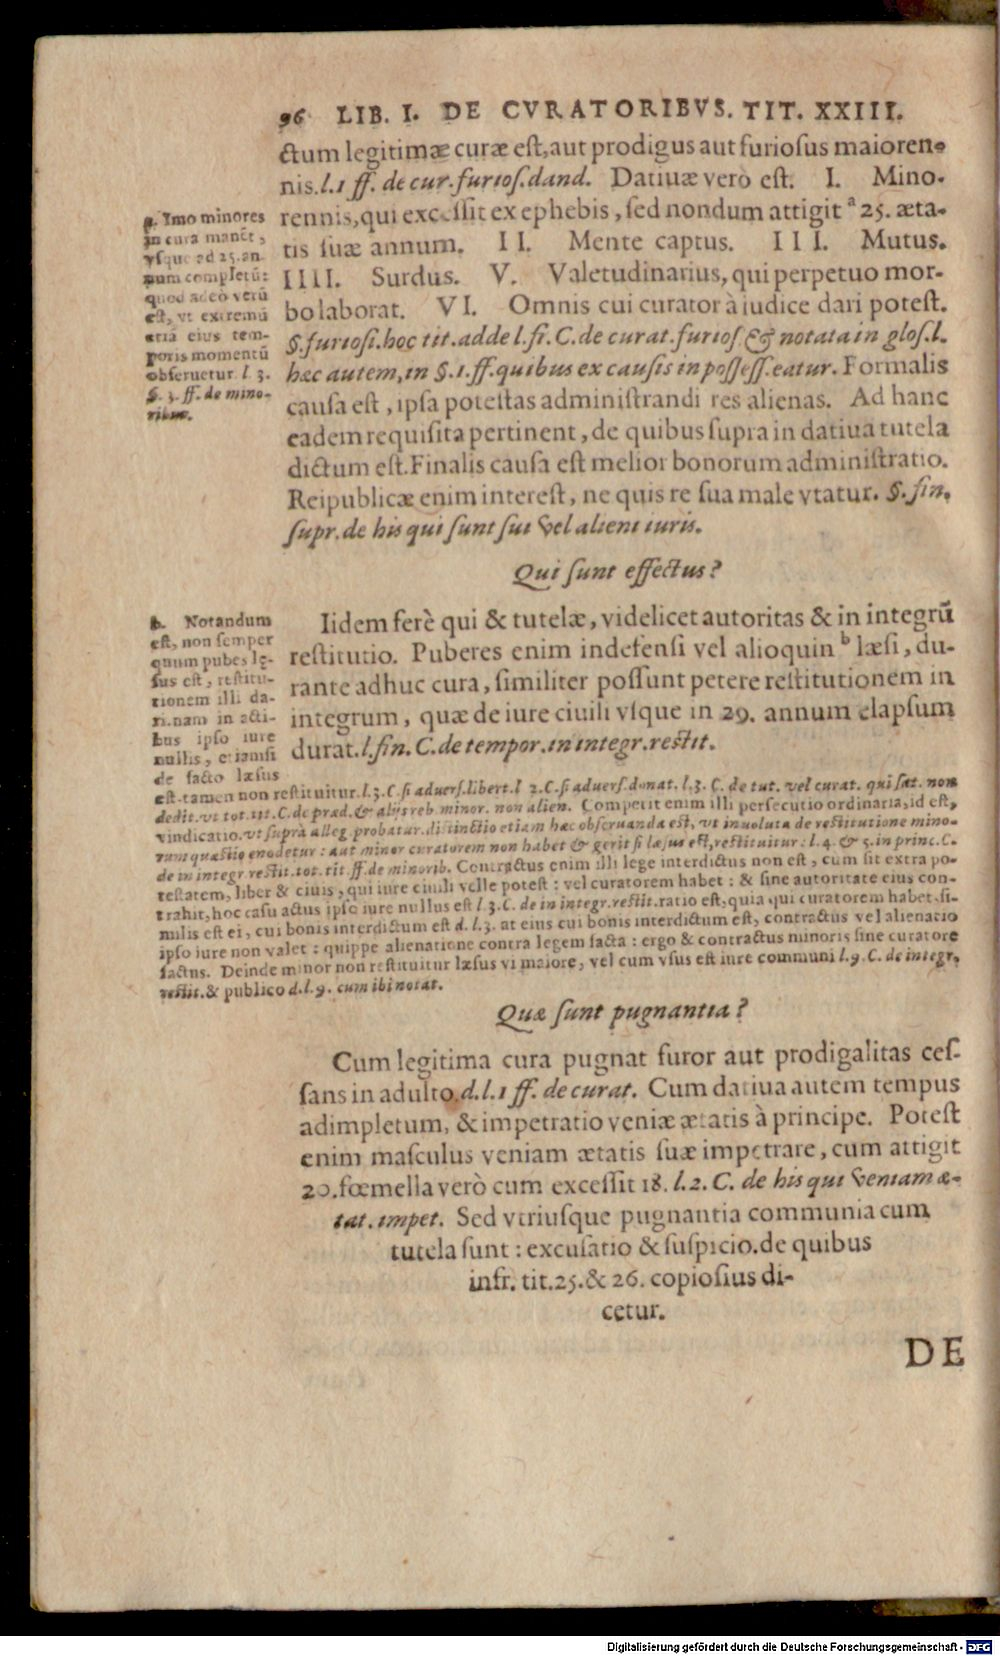 96 LIB. I. DE CVRATORIBVS. TIT. XXIII.
ctum legitimæ curæ est, aut prodigus aut furiosus maioren-
nis. l. 1 ff. de cur. furios. dand. Datiuæ verò est. I. Mino-
rennis, qui excessit ex ephebis, sed nondum attigit ª 25. æta-
tis suæ annum. II. Mente captus. III. Mutus.
IIII. Surdus. V. Valetudinarius, qui perpetuo mor-
bo laborat. VI. Omnis cui curator à iudice dari potest.
§. furiosi. hoc tit. adde l. fi. C. de curat. furios. & notata in glos. l.
hæc autem, in §. 1. ff. quibus ex causis in possess. eatur. Formalis
causa est, ipsa potestas administrandi res alienas. Ad hanc
eadem requisita pertinent, de quibus supra in datiua tutela
dictum est. Finalis causa est melior bonorum administratio.
Reipublicæ enim interest, ne quis re sua male vtatur. §. fin.
supr. de his qui sunt sui vel alieni iuris.
a. Imo minores
in cura manẽt,
vsque ad 25. an-
num completũ:
quod adeò verũ
est, vt extremũ
etiã eius tem-
poris momentũ
obseruetur l. 3.
§. 3. ff. de mino-
ribus.
Qui sunt effectus?
Iidem ferè qui & tutelæ, videlicet autoritas & in integrũ
restitutio. Puberes enim indefensi vel alioquin ᵇ læsi, du-
rante adhuc cura, similiter possunt petere restitutionem in
integrum, quæ de iure ciuili vsque in 29. annum elapsum
durat. l. fin. C. de tempor. in integr. restit.
b. Notandum
est, non semper
quum pubes lę-
sus est, restitu-
tionem illi da-
ri. nam in acti-
bus ipso iure
nullis, etiamsi
de facto læsus
est. tamen non restituitur. l. 3. C. si aduers. libert. l 2. C. si aduers. donat. l. 3. C. de tut. vel curat. qui sat. non
dedit. vt tot. tit. C. de præd. & alijs reb. minor. non alien. Competit enim illi persecutio ordinaria, id est,
vindicatio. vt suprà alleg. probatur. distinctio etiam hæc obseruanda est, vt inuoluta de restitutione mino-
rum quæstio enodetur: aut minor curatorem non habet & gerit si læsus est, restituitur: l. 4. & 5. in princ. C.
de in integr. restit. tot. tit. ff. de minorib. Contractus enim illi lege interdictus non est, cum sit extra po-
testatem, liber & ciuis, qui iure ciuili velle potest: vel curatorem habet: & sine autoritate eius con-
trahit, hoc casu actus ipso iure nullus est l. 3. C. de in integr. restit. ratio est, quia qui curatorem habet, si-
milis est ei, cui bonis interdictum est d. l. 3. at eius cui bonis interdictum est, contractus vel alienatio
ipso iure non valet: quippe alienatione contra legem facta: ergo & contractus minoris sine curatore
factus. Deinde minor non restituitur læsus vi maiore, vel cum vsus est iure communi l. 9. C. de integr.
restit. & publico d. l. 9. cum ibi notat.
Quæ sunt pugnantia?
Cum legitima cura pugnat furor aut prodigalitas ces-
sans in adulto. d. l. 1 ff. de curat. Cum datiua autem tempus
adimpletum, & impetratio veniæ ætatis à principe. Potest
enim masculus veniam ætatis suæ impetrare, cum attigit
20. fœmella verò cum excessit 18. l. 2. C. de his qui veniam æ-
tat. impet. Sed vtriusque pugnantia communia cum
tutela sunt: excusatio & suspicio. de quibus
infr. tit. 25. & 26. copiosius di-
cetur.
DE
Digitalisierung gefördert durch die Deutsche Forschungsgemeinschaft - DFG